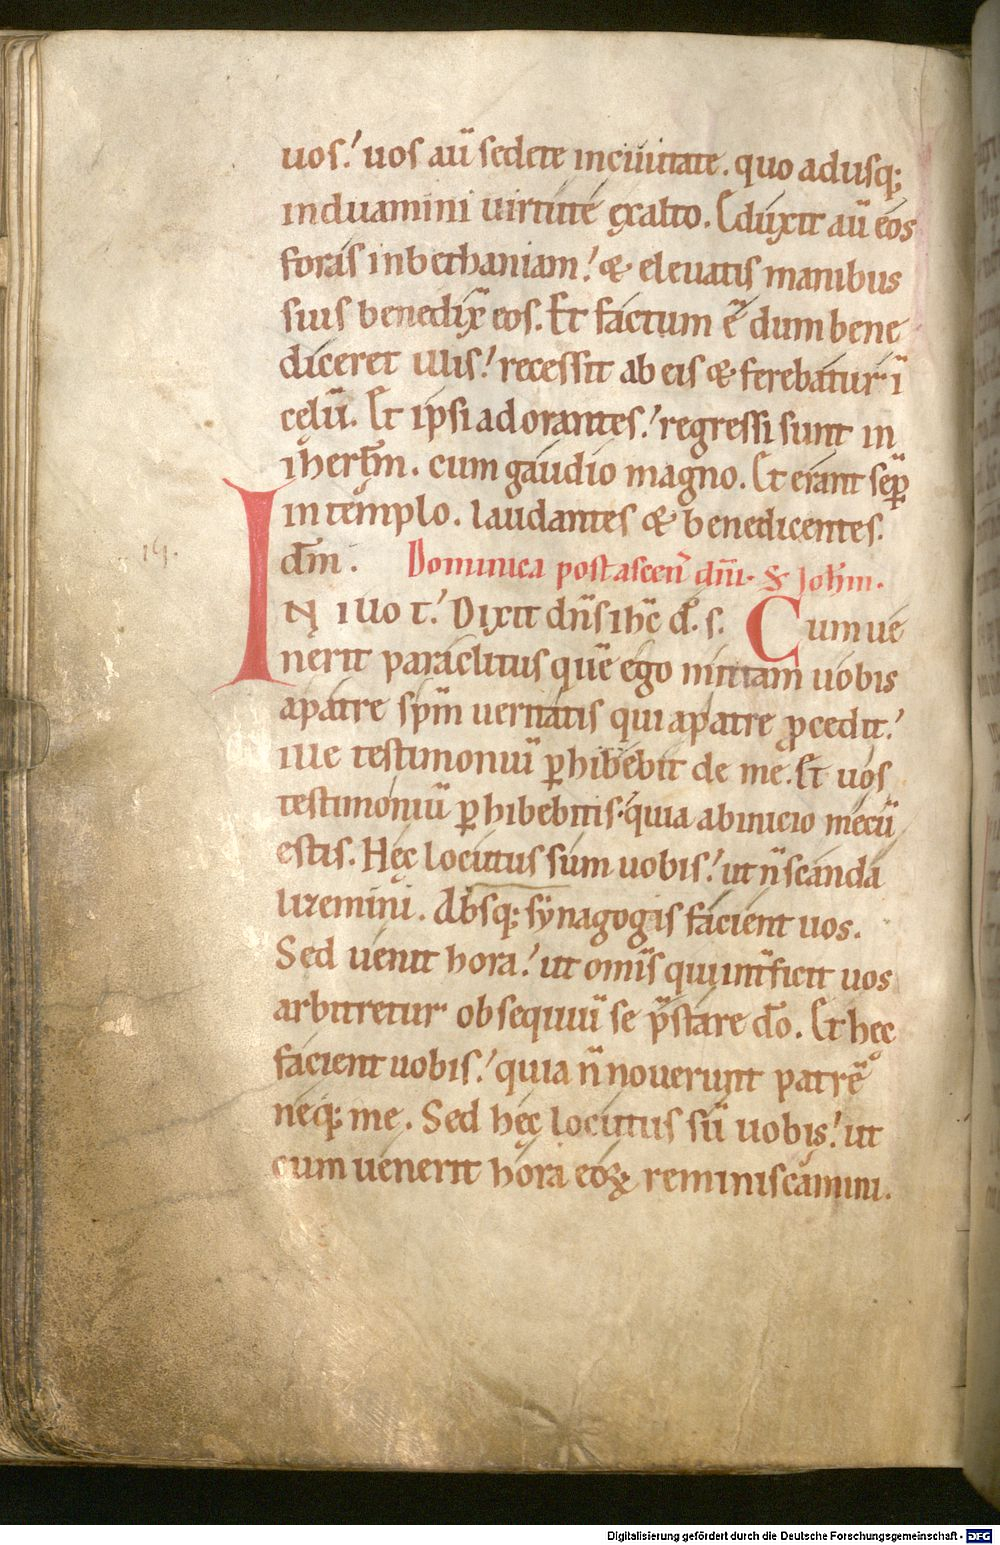 uos. uos aū sedete inciuitate. quo adusq;
induamini uirtutē ęxalto. Eduxit aū eos
foras inbethaniam. & eleuatis manibus
suis benedix̄ eos. Et factum ē dum bene
diceret illis. recessit ab eis & ferebatur ī
celū. Et ipsi adorantes. regressi sunt in
iherłm. cum gaudio magno. Et erant sēp
in templo. laudantes & benedicentes.
dm̄. Dominica post ascen̄ dn̄i. S Joħm.
19.
IN illo t̄. Dixit dn̄s ihc̄ d. s. Cum ue
nerit paraclitus quē ego mittam uobis
apatre spm̄ ueritatis qui apatre ꝓcedit.
ille testimoniū ꝑhibebit de me. Et uos
testimoniū ꝑhibebitis. quia abinicio mecū
estis. Hęc locutus sum uobis. ut n̄ scanda
lizemini. Absq; synagogis facient uos.
Sed uenit hora. ut omīs qui int̄ficit uos
arbitretur obsequiū se p̄stare dō. Et hęc
facient uobis. quia n̄ nouerunt patrē
neq; me. Sed hęc locutus sū uobis. ut
cum uenerit hora eoꝝ reminiscamini.
Digitalisierung gefördert durch die Deutsche Forschungsgemeinschaft - DFG